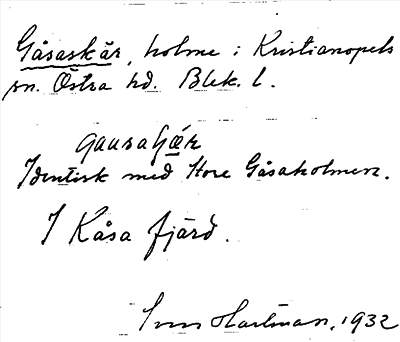 Gåsaskär, holme i Kristianopels
sn. Östra hd. Blek. l.
Identisk med Store Gåsaholmen.
I Kåsa fjärd.
Hartman, 1932